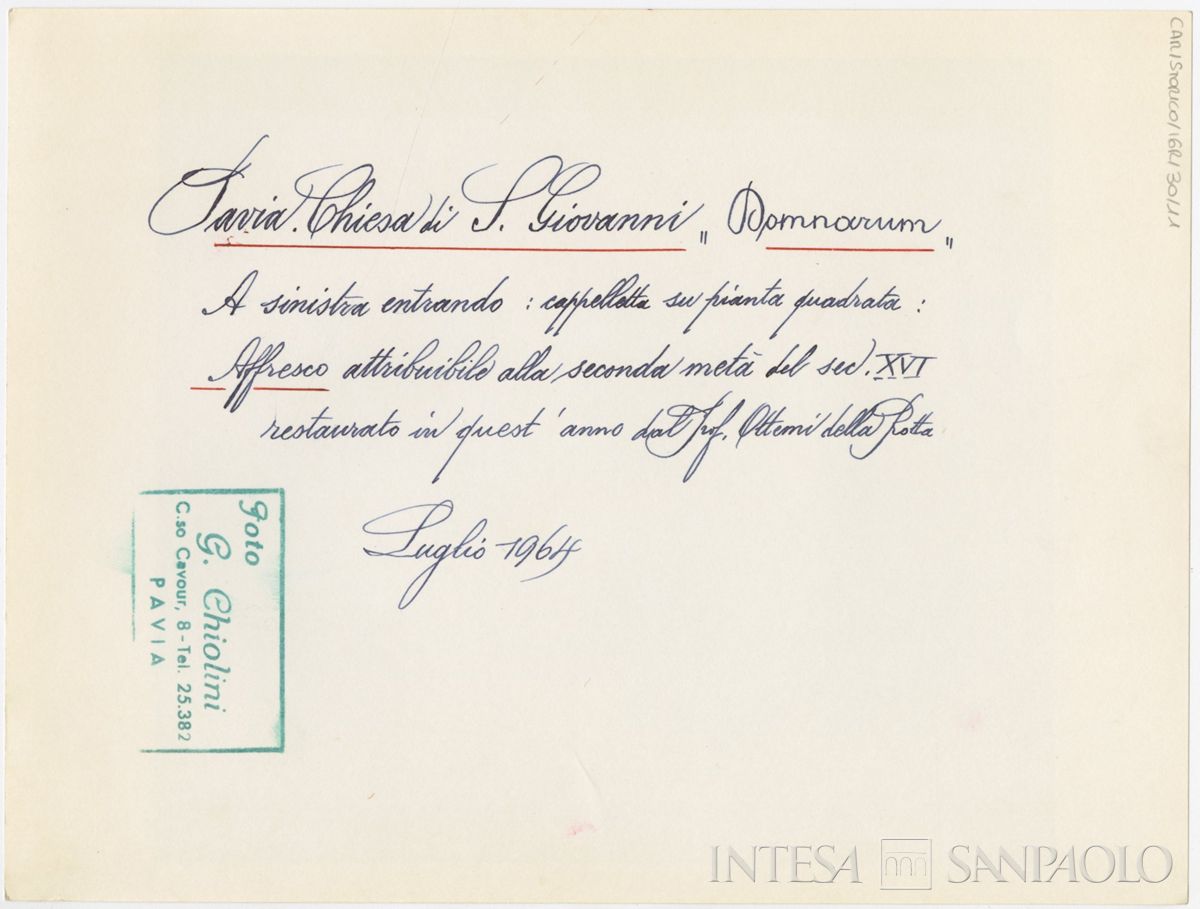 CARISTORICO/16R/30/11
Pavia. Chiesa di S. Giovanni „ Domnarum „
A sinistra entrando : cappelletta su pianta quadrata :
Affresco attribuibile alla seconda metà del sec. XVI
restaurato in quest'anno dal Prof. Ottemi della Rotta
Luglio 1964
Foto
G. Chiolini
C.so Cavour, 8 - Tel. 25.382
PAVIA
INTESA SANPAOLO